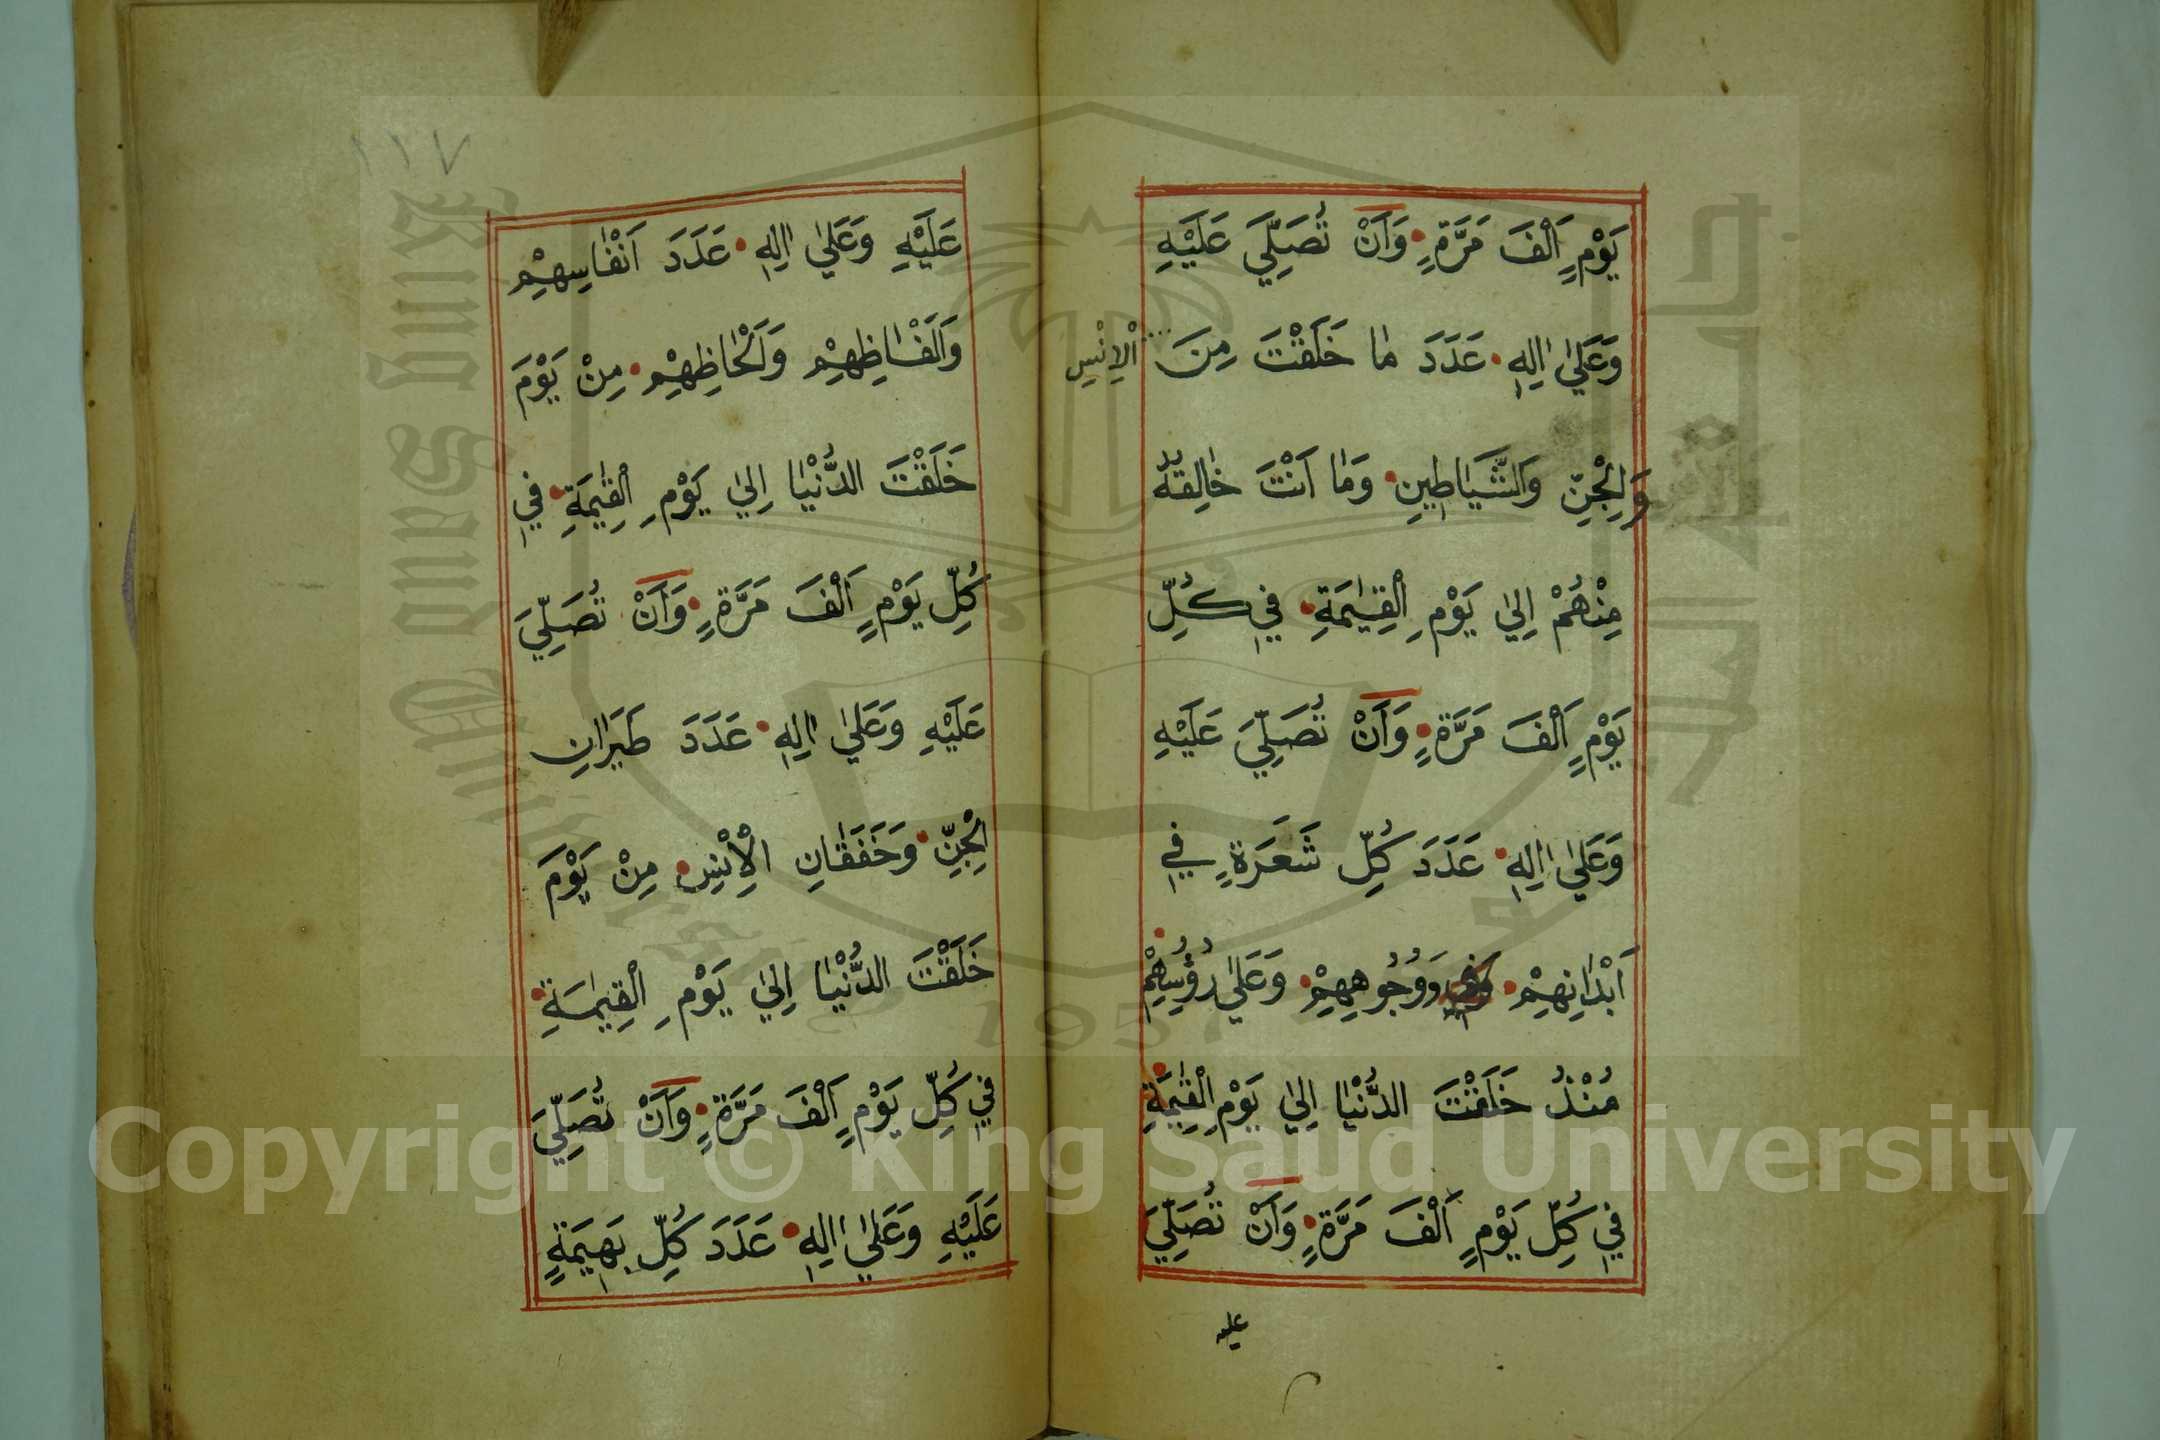 يَوْمٍ اَلْفَ مَرَّةٍ وَاَنْ تُصَلِّيَ عَلَيْهِ
وَعَلٰي اٰلِهٖ عَدَدَ مَا خَلَقْتَ مِنَ الْاِنْسِ
وَالْجِنِّ وَالشَّيَاطِينِ وَمَا اَنْتَ خَالِقُهُ
مِنْهُمْ اِلٰي يَوْمِ الْقِيٰمَةِ فِي كُلِّ
يَوْمٍ اَلْفَ مَرَّةٍ وَاَنْ تُصَلِّيَ عَلَيْهِ
وَعَلٰي اٰلِهٖ عَدَدَ كُلِّ شَعَرَةٍ فِي
اَبْدَانِهِمْ وَوُجُوهِهِمْ وَعَلٰي رُؤُسِهِمْ
مُنْذُ خَلَقْتَ الدُّنْيَا اِلٰي يَوْمِ الْقِيٰمَةِ
فِي كُلِّ يَوْمٍ اَلْفَ مَرَّةٍ وَاَنْ تُصَلِّيَ
عليه
١١٧
عَلَيْهِ وَعَلٰي اٰلِهٖ عَدَدَ اَنْفَاسِهِمْ
وَاَلْفَاظِهِمْ وَاَلْحَاظِهِمْ مِنْ يَوْمَ
خَلَقْتَ الدُّنْيَا اِلٰي يَوْمِ الْقِيٰمَةِ فِي
كُلِّ يَوْمٍ اَلْفَ مَرَّةٍ وَاَنْ تُصَلِّيَ
عَلَيْهِ وَعَلٰي اٰلِهٖ عَدَدَ طَيَرَانِ
الْجِنِّ وَخَفَقَانِ الْاِنْسِ مِنْ يَوْمَ
خَلَقْتَ الدُّنْيَا اِلٰي يَوْمِ الْقِيٰمَةِ
فِي كُلِّ يَوْمٍ اَلْفَ مَرَّةٍ وَاَنْ تُصَلِّيَ
عَلَيْهِ وَعَلٰي اٰلِهٖ عَدَدَ كُلِّ بَهِيمَةٍ
King Saud University
1957
Copyright © King Saud University